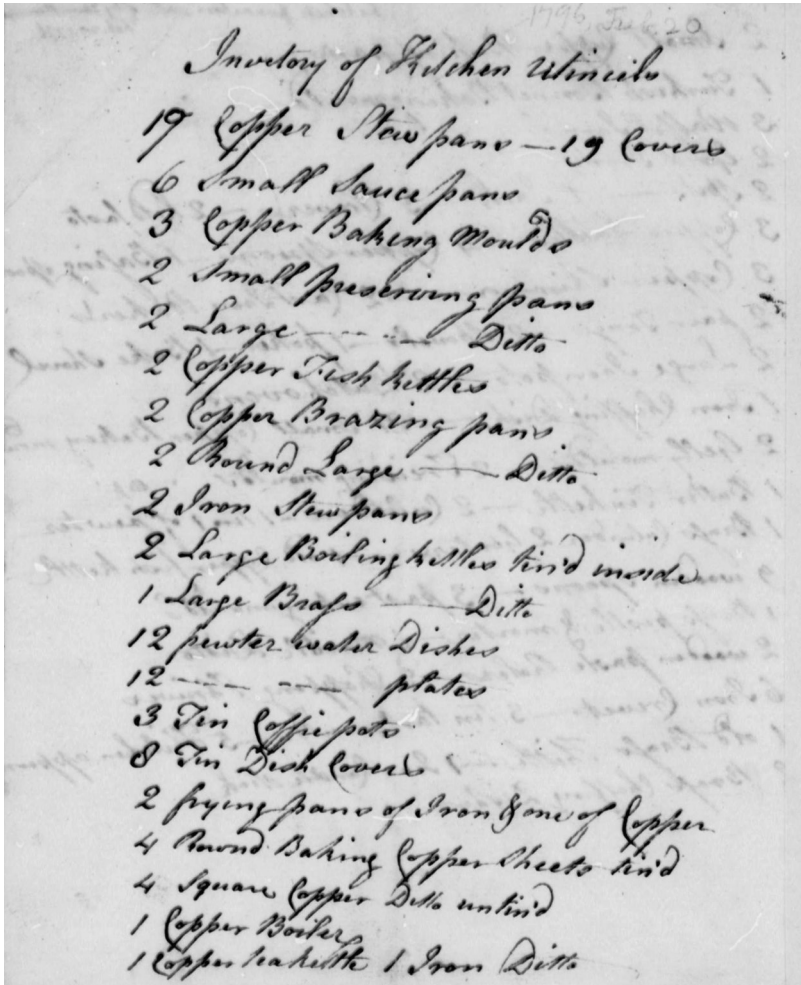 1796, Feb 20
Invetory of Kitchen Utincils
19 Copper Stew pans — 19 Covers
6 Small Sauce pans
3 Copper Baking Moulds
2 Small preserving pans
2 Large — — — Ditto
2 Copper Fish kettles
2 Copper Brazing pans
2 Round Large — Ditto
2 Iron Stewpans
2 Large Boiling kettles tin'd inside
1 Large Brass — Ditto
12 pewter water Dishes
12 — — — — plates
3 Tin Coffie pots
8 Tin Dish Covers
2 frying pans of Iron & one of Copper
4 Round Baking Copper Sheets tin'd
4 Square Copper Ditto untin'd
1 Copper Boiler
1 Copper teakettle 1 Iron Ditto